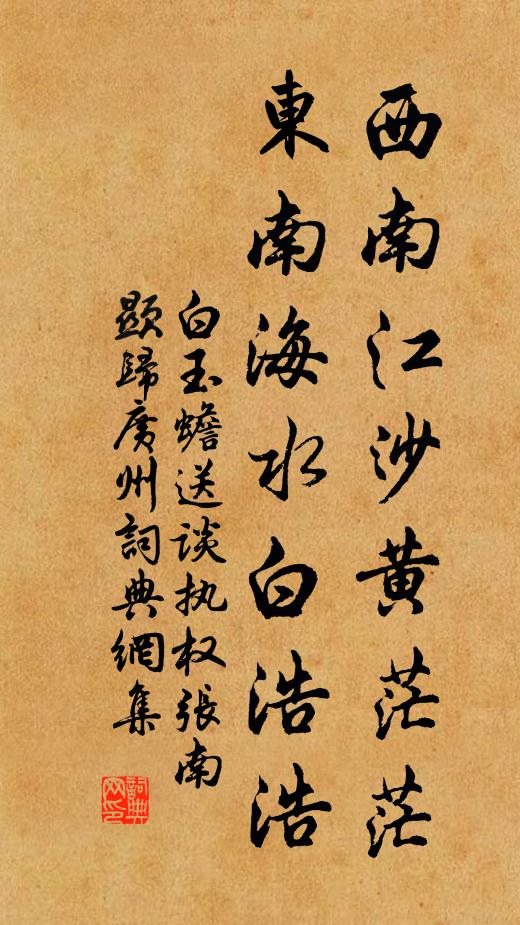 西南江沙黄茫茫
東南海水白浩浩
白玉蟾送谈执权張南
顯歸廣州詞典網集
詞典
网印